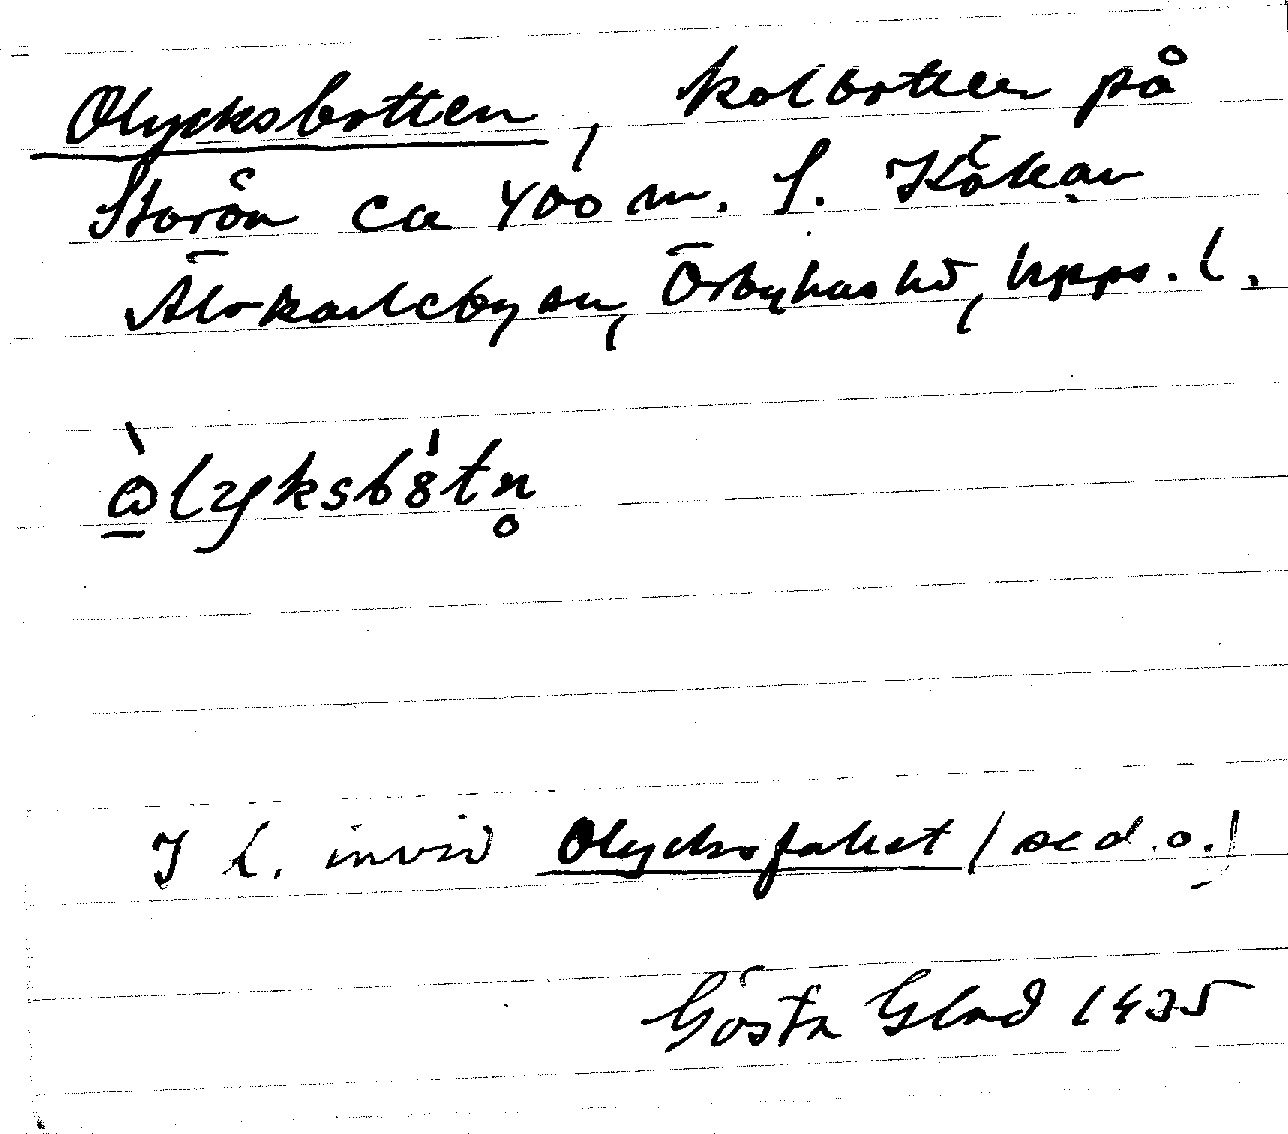 Olycksbotten, kolbotten på
Storön ca 400 m. S. Kökan
Älvkarleby sn, Örbyhus hd, Upps. l.
ꞷ̀lyksbȯ́tn̥
I L. invid Olycksfaket (se d.o.)
Gösta Glad 1935